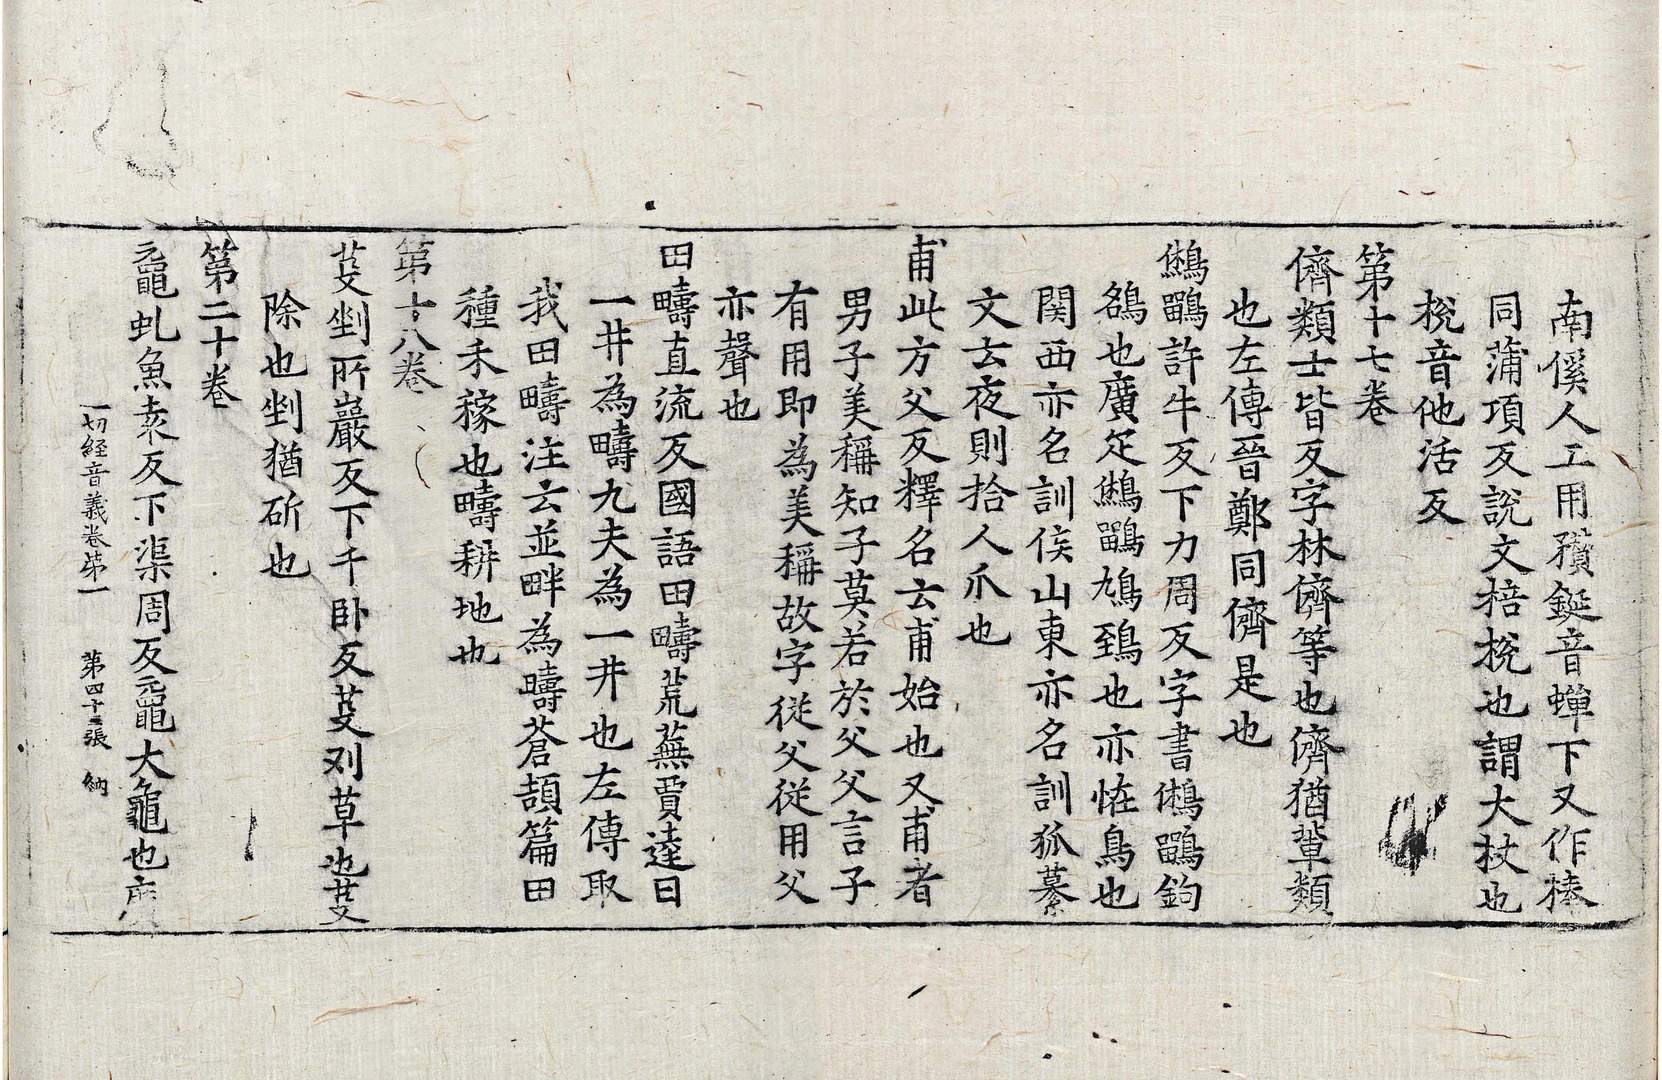 南傒人工用積鋋音蟬下又作棒
同蒲項反說文棓棁也謂大杖也
棁音他活反
第十七卷
儕類士皆反字林儕等也儕猶輩類
也左傳晉鄭同儕是也
鵂鶹許牛反下力周反字書鵂鶹鉤
鵅也廣疋鵂鶹鳩鵄也亦恠鳥也
関西亦名訓侯山東亦名訓狐纂
文云夜則拾人爪也
甫此方父反釋名云甫始也又甫者
男子美稱知子莫若於父父言子
有用即為美稱故字從父從用父
亦聲也
田疇直流反國語田疇荒蕪賈逵曰
一井為疇九夫為一井也左傳取
我田疇注云並畔為疇蒼頡篇田
種禾稼也疇耕地也
第十八卷
芟剉所巖反下千卧反芟刈草也芟
除也剉猶斫也
第二十卷
黿虬魚袁反下渠周反黿大龜也
一切経音義卷苐一 第四十三張 納